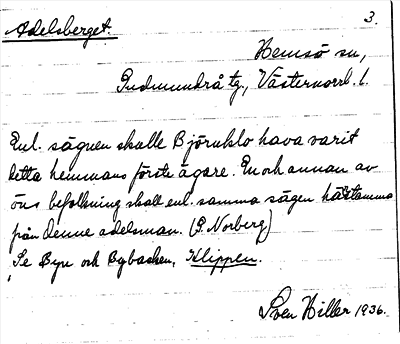 Adelsberget. 3.
Hemsö sn,
Gudmundrå tg., Västernorrl. l.
Enl. sägnen skulle Björnklo hava varit
detta hemmans förste ägare. En och annan av
öns befolkning skall enl. samma sägen härstamma
från denne adelsman. (P. Norberg)
Se Byn och Bybacken, Klippen.
Sven Hiller 1936.